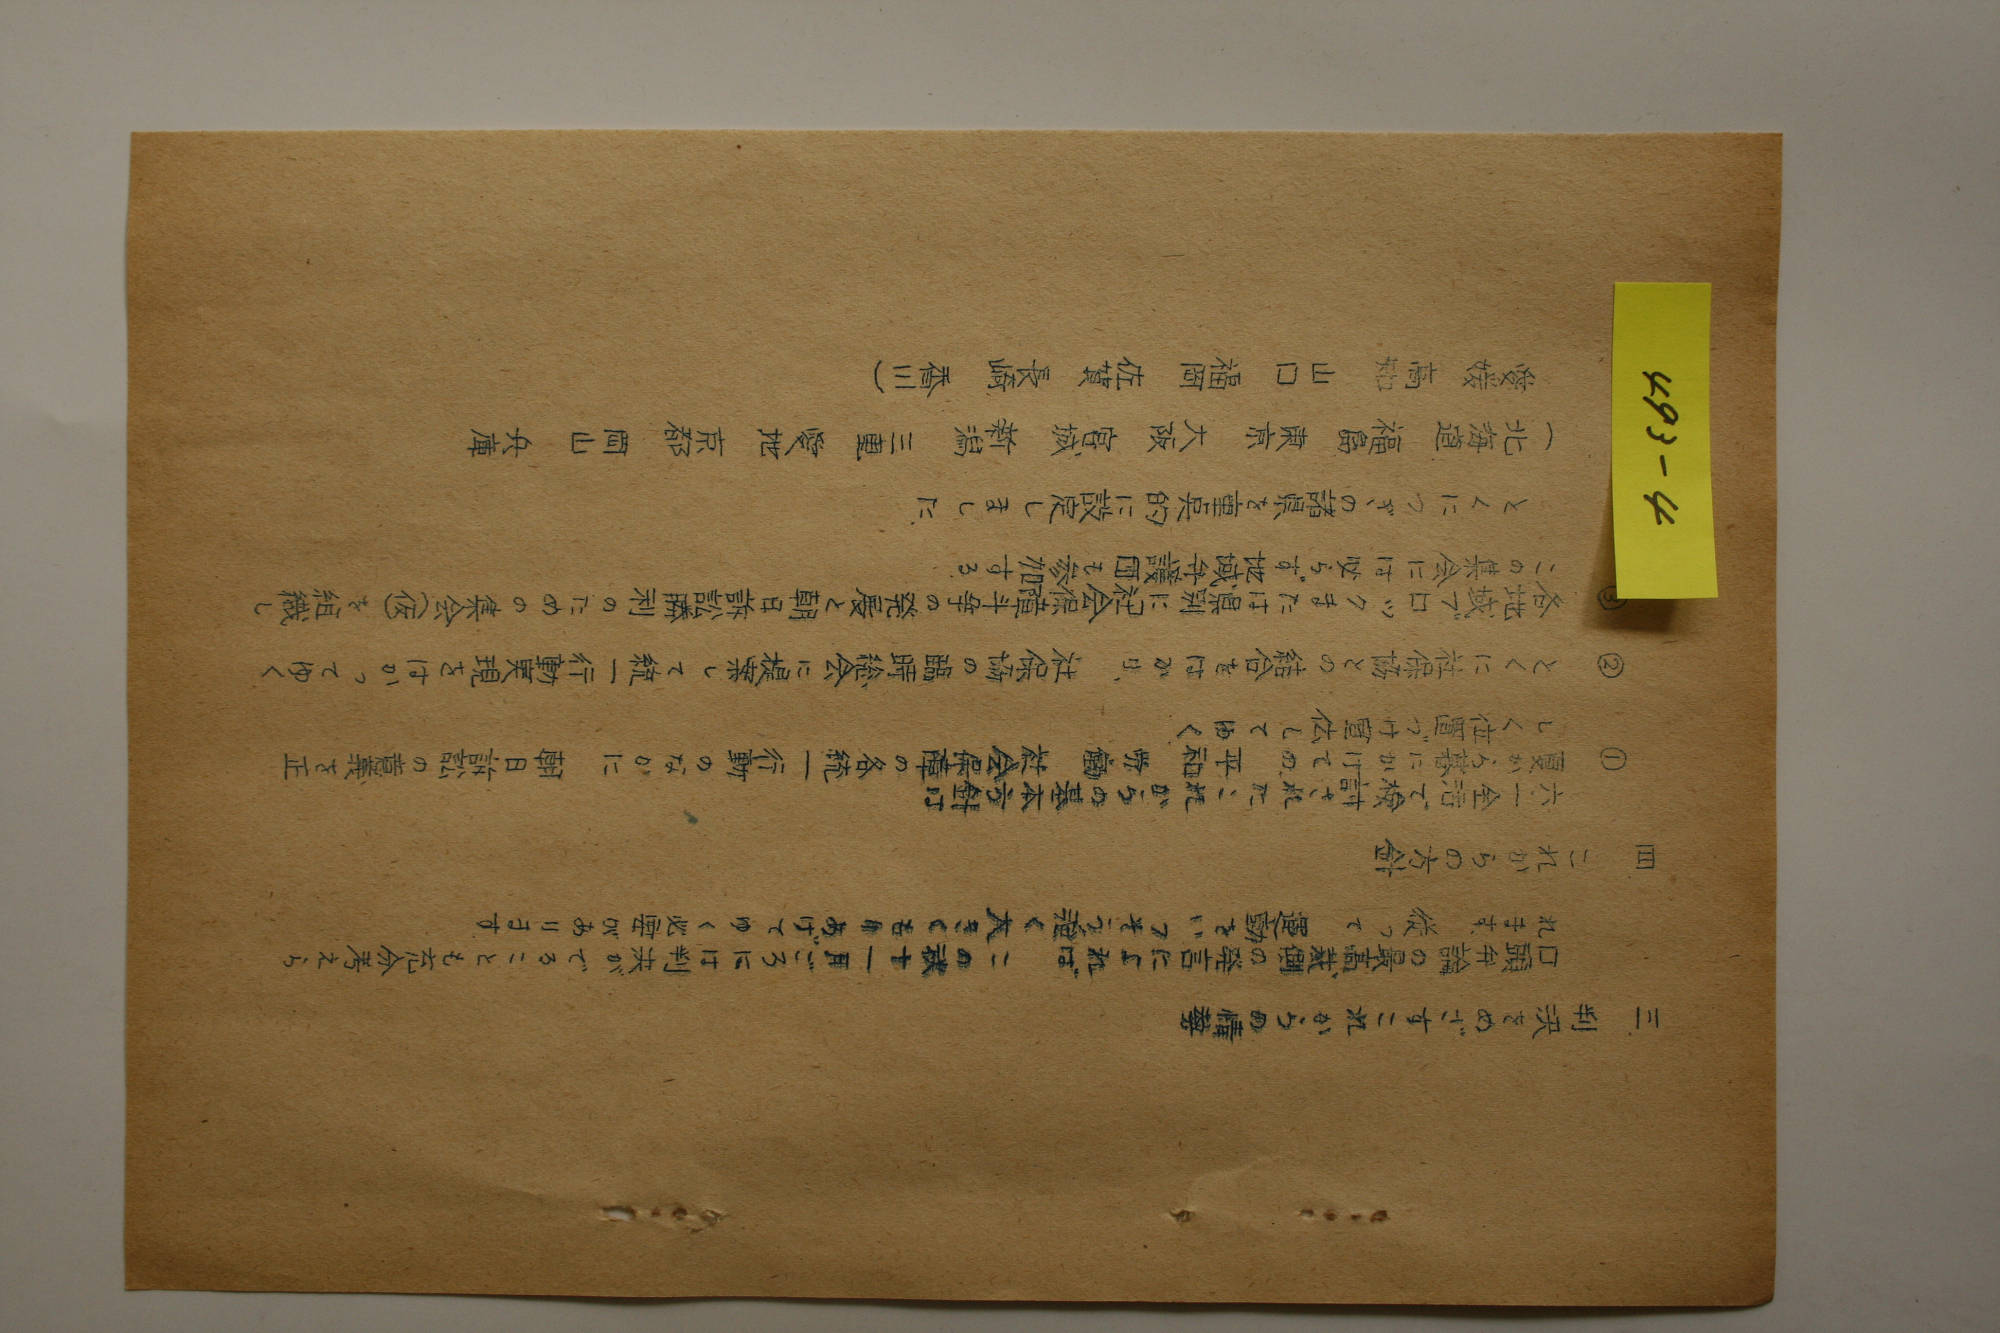 三 判決をめざすこれからの情勢
口頭弁論の最高裁側の発言によれば この秋十一月ごろには判決がでることも充分考えら
れます、従って 運動をいっそう強く大きくもりあげてゆく必要があります
四 これからの方針
六・一全活で検討されたこれからの基本方針は
① 夏から暮にかけての、平和 労働 社会保障の各統一行動のなかに 朝日訴訟の意義を正
しく位置づけ宣伝してゆく
② とくに社保協との結合をはかり、社保協の臨時総会に提案して統一行動実現をはかってゆく
③ 各地域ブロックまたは県別に「社会保障斗争の発展と朝日訴訟勝利のための集会(仮)を組織し
この集会には必らず地域争議団も参加する
とくにつぎの諸県を重点的に設定しました
(北海道 福島 東京 大阪 宮城 新潟 三重 愛地 京都 岡山 兵庫
愛媛 高知 山口 福岡 佐賀 長崎 香川)
493-4